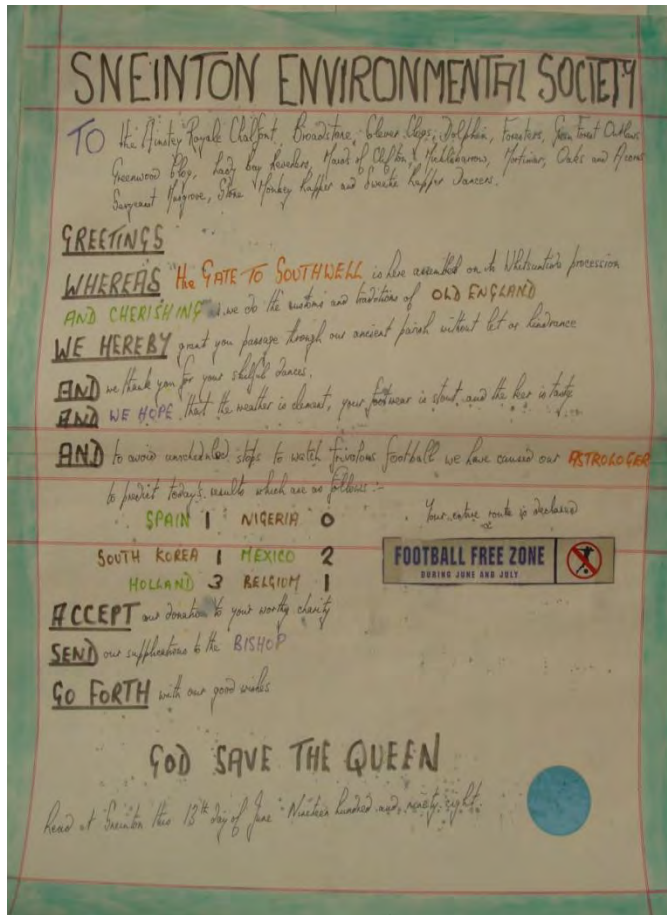 SNEINTON ENVIRONMENTAL SOCIETY
TO the Ainstey Royale Chalfont, Broadstone, Clever Clogs, Dolphin, Foresters, Green Forest Outlaws
Greenwood Clog, Lady Bay Revellers, Maids of Clifton & Mucklebarrow, Mortimer, Oaks and Acorns
Sargeant Musgrove, Stone Monkey Rapper and Sweetie Rapper Dancers.
GREETINGS
WHEREAS "the GATE TO SOUTHWELL is here assembled on its Whitsuntide procession
AND CHERISHING as we do the customs and traditions of OLD ENGLAND
WE HEREBY grant you passage through our ancient parish without let or hindrance
AND we thank you for your skilful dances.
AND WE HOPE that the weather is clement, your footwear is stout and the beer is tasty
AND to avoid unscheduled stops to watch frivolous football we have caused our ASTROLOGER
to predict today's results which are as follows :-
SPAIN 1 NIGERIA 0
Your entire route is declared
SOUTH KOREA 1 MEXICO 2
FOOTBALL FREE ZONE
DURING JUNE AND JULY
HOLLAND 3 BELGIUM 1
ACCEPT our donation to your worthy charity
SEND our supplications to the BISHOP
GO FORTH with our good wishes
GOD SAVE THE QUEEN
Read at Sneinton this 13th day of June Nineteen hundred and ninety eight.